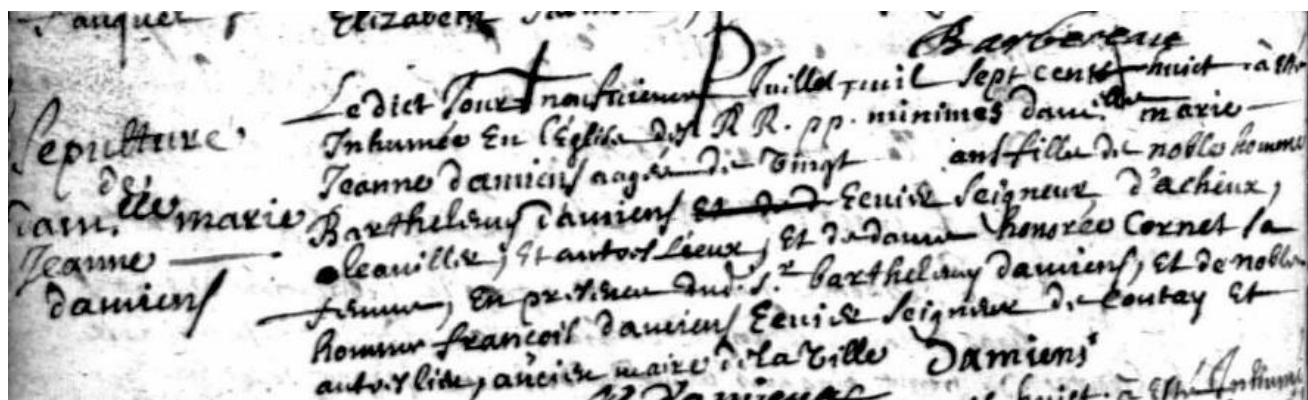 Elizabeth
Barbereau
Sepulture
d'elle
dam.elle marie
Jeanne
damiens
Le dict Jour neufvieme Juillet mil sept cents huict à esté
Inhumée En l'Eglise des RR. pp. minimes dam.lle marie
Jeanne damiens aagée de vingt ans fille de noble homme
Barthelemy damiens Ecuier Seigneur d'acheux,
leauillé, Et autres Lieux, Et de dame honorée Cornet sa
femme, En presence dud. s.r barthelemy damiens, Et de noble
homme francois damiens Ecuier Seigneur de Contay Et
autres lieux, ancien maire de la Ville Damiens
huict à Esté Inhumé